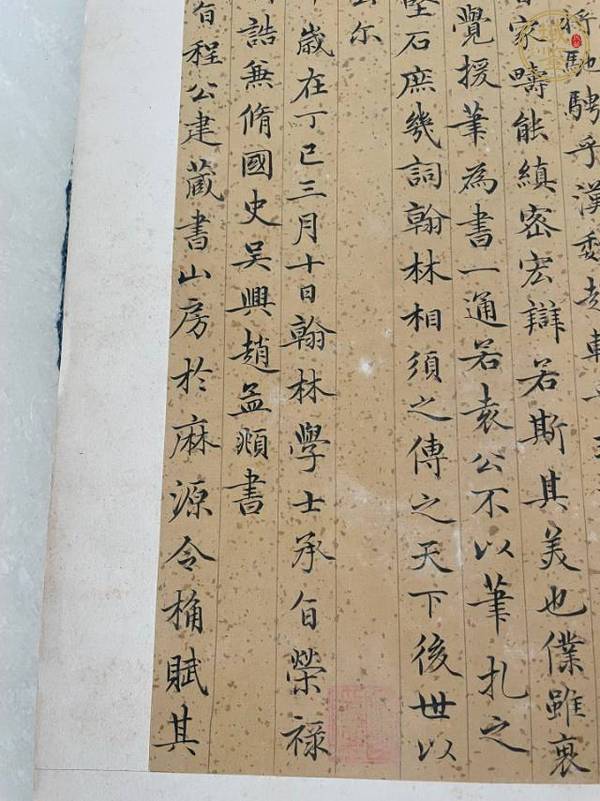 將馳騁乎漢委赴
家疇能縝密宏辯若斯其美也僕雖衰
覺援筆為書一通若袁公不以筆札之
堅石庶幾詞翰林相須之傳之天下後世以
云尔
歲在丁巳三月十日翰林學士承旨榮祿
誥兼脩國史吳興趙孟頫書
旨程公建藏書山房於麻源令桷賦其